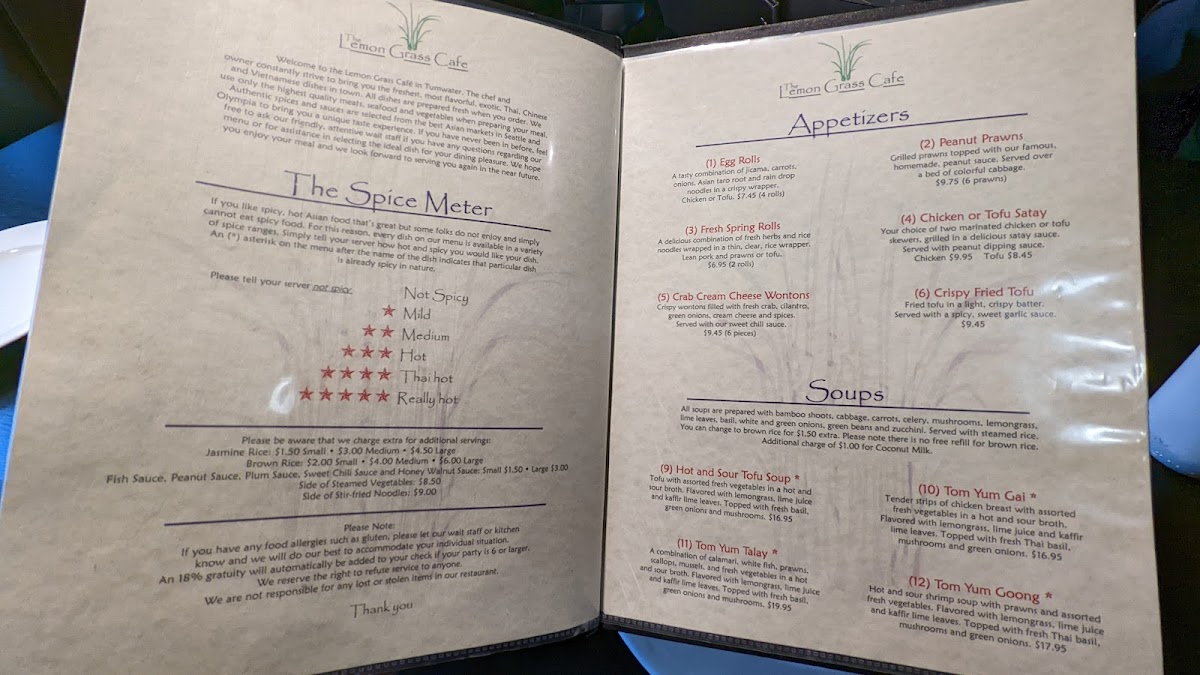 The
Lemon Grass Cafe
Welcome to the Lemon Grass Café in Tumwater. The chef and
owner constantly strive to bring you the freshest, most flavorful, exotic, Thai, Chinese
and Vietnamese dishes in town. All dishes are prepared fresh when you order. We
use only the highest quality meats, seafood and vegetables when preparing your meal.
Authentic spices and sauces are selected from the best Asian markets in Seattle and
Olympia to bring you a unique taste experience. If you have never been in before, feel
free to ask our friendly, attentive wait staff if you have any questions regarding our
menu or for assistance in selecting the ideal dish for your dining pleasure. We hope
you enjoy your meal and we look forward to serving you again in the near future.
The Spice Meter
If you like spicy, hot Asian food that's great but some folks do not enjoy and simply
cannot eat spicy food. For this reason, every dish on our menu is available in a variety
of spice ranges. Simply tell your server how hot and spicy you would like your dish.
An (*) asterisk on the menu after the name of the dish indicates that particular dish
is already spicy in nature.
Please tell your server not spicy. Not Spicy
★ Mild
★★ Medium
★★★ Hot
★★★★ Thai hot
★★★★★ Really hot
Please be aware that we charge extra for additional servings:
Jasmine Rice: $1.50 Small • $3.00 Medium • $4.50 Large
Brown Rice: $2.00 Small • $4.00 Medium • $6.00 Large
Fish Sauce, Peanut Sauce, Plum Sauce, Sweet Chili Sauce and Honey Walnut Sauce: Small $1.50 • Large $3.00
Side of Steamed Vegetables: $8.50
Side of Stir-fried Noodles: $9.00
Please Note:
If you have any food allergies such as gluten, please let our wait staff or kitchen
know and we will do our best to accommodate your individual situation.
An 18% gratuity will automatically be added to your check if your party is 6 or larger.
We reserve the right to refuse service to anyone.
We are not responsible for any lost or stolen items in our restaurant.
Thank you
The
Lemon Grass Cafe
Appetizers
(1) Egg Rolls
A tasty combination of jicama, carrots,
onions, Asian taro root and rain drop
noodles in a crispy wrapper.
Chicken or Tofu. $7.45 (4 rolls)
(2) Peanut Prawns
Grilled prawns topped with our famous,
homemade, peanut sauce. Served over
a bed of colorful cabbage.
$9.75 (6 prawns)
(3) Fresh Spring Rolls
A delicious combination of fresh herbs and rice
noodles wrapped in a thin, clear, rice wrapper.
Lean pork and prawns or tofu.
$6.95 (2 rolls)
(4) Chicken or Tofu Satay
Your choice of two marinated chicken or tofu
skewers, grilled in a delicious satay sauce.
Served with peanut dipping sauce.
Chicken $9.95 Tofu $8.45
(5) Crab Cream Cheese Wontons
Crispy wontons filled with fresh crab, cilantro,
green onions, cream cheese and spices.
Served with our sweet chili sauce.
$9.45 (6 pieces)
(6) Crispy Fried Tofu
Fried tofu in a light, crispy batter.
Served with a spicy, sweet garlic sauce.
$9.45
Soups
All soups are prepared with bamboo shoots, cabbage, carrots, celery, mushrooms, lemongrass,
lime leaves, basil, white and green onions, green beans and zucchini. Served with steamed rice.
You can change to brown rice for $1.50 extra. Please note there is no free refill for brown rice.
Additional charge of $1.00 for Coconut Milk.
(9) Hot and Sour Tofu Soup *
Tofu with assorted fresh vegetables in a hot and
sour broth. Flavored with lemongrass, lime juice
and kaffir lime leaves. Topped with fresh basil,
green onions and mushrooms. $16.95
(10) Tom Yum Gai *
Tender strips of chicken breast with assorted
fresh vegetables in a hot and sour broth.
Flavored with lemongrass, lime juice and kaffir
lime leaves. Topped with fresh Thai basil,
mushrooms and green onions. $16.95
(11) Tom Yum Talay *
A combination of calamari, white fish, prawns,
scallops, mussels, and fresh vegetables in a hot
and sour broth. Flavored with lemongrass, lime juice
and kaffir lime leaves. Topped with fresh basil,
green onions and mushrooms. $19.95
(12) Tom Yum Goong *
Hot and sour shrimp soup with prawns and assorted
fresh vegetables. Flavored with lemongrass, lime juice
and kaffir lime leaves. Topped with fresh Thai basil,
mushrooms and green onions. $17.95